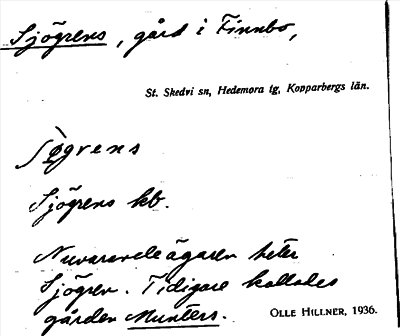 Sjögrens, gård i Finnbo,
St. Skedvi sn, Hedemora tg, Kopparbergs län.
Sjögrens kb.
Nuvarande ägaren heter
Sjögren. Tidigare kallades
gården Munters.
OLLE HILLNER, 1936.